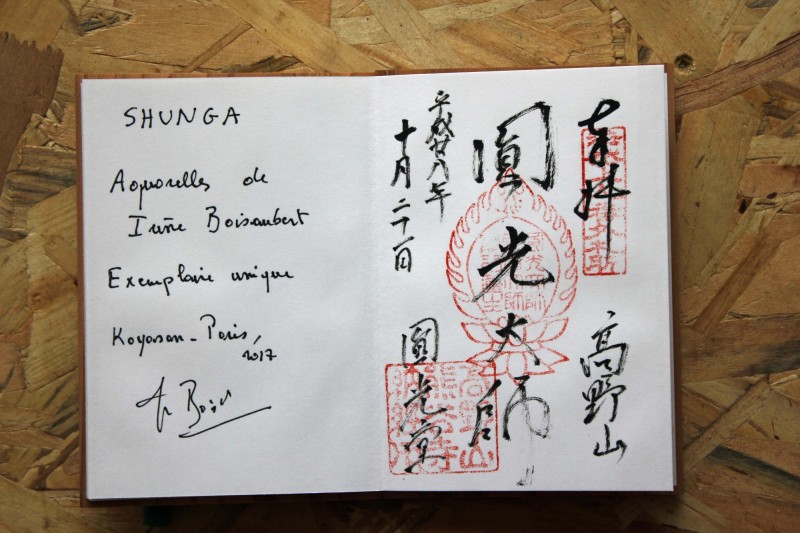 SHUNGA
Aquarelles de
Irène Boisaubert
Exemplaire unique
Koyasan - Paris,
2017
奉拝
高野山
圓光大師
平成廿八年
十月二十一日
圓光堂